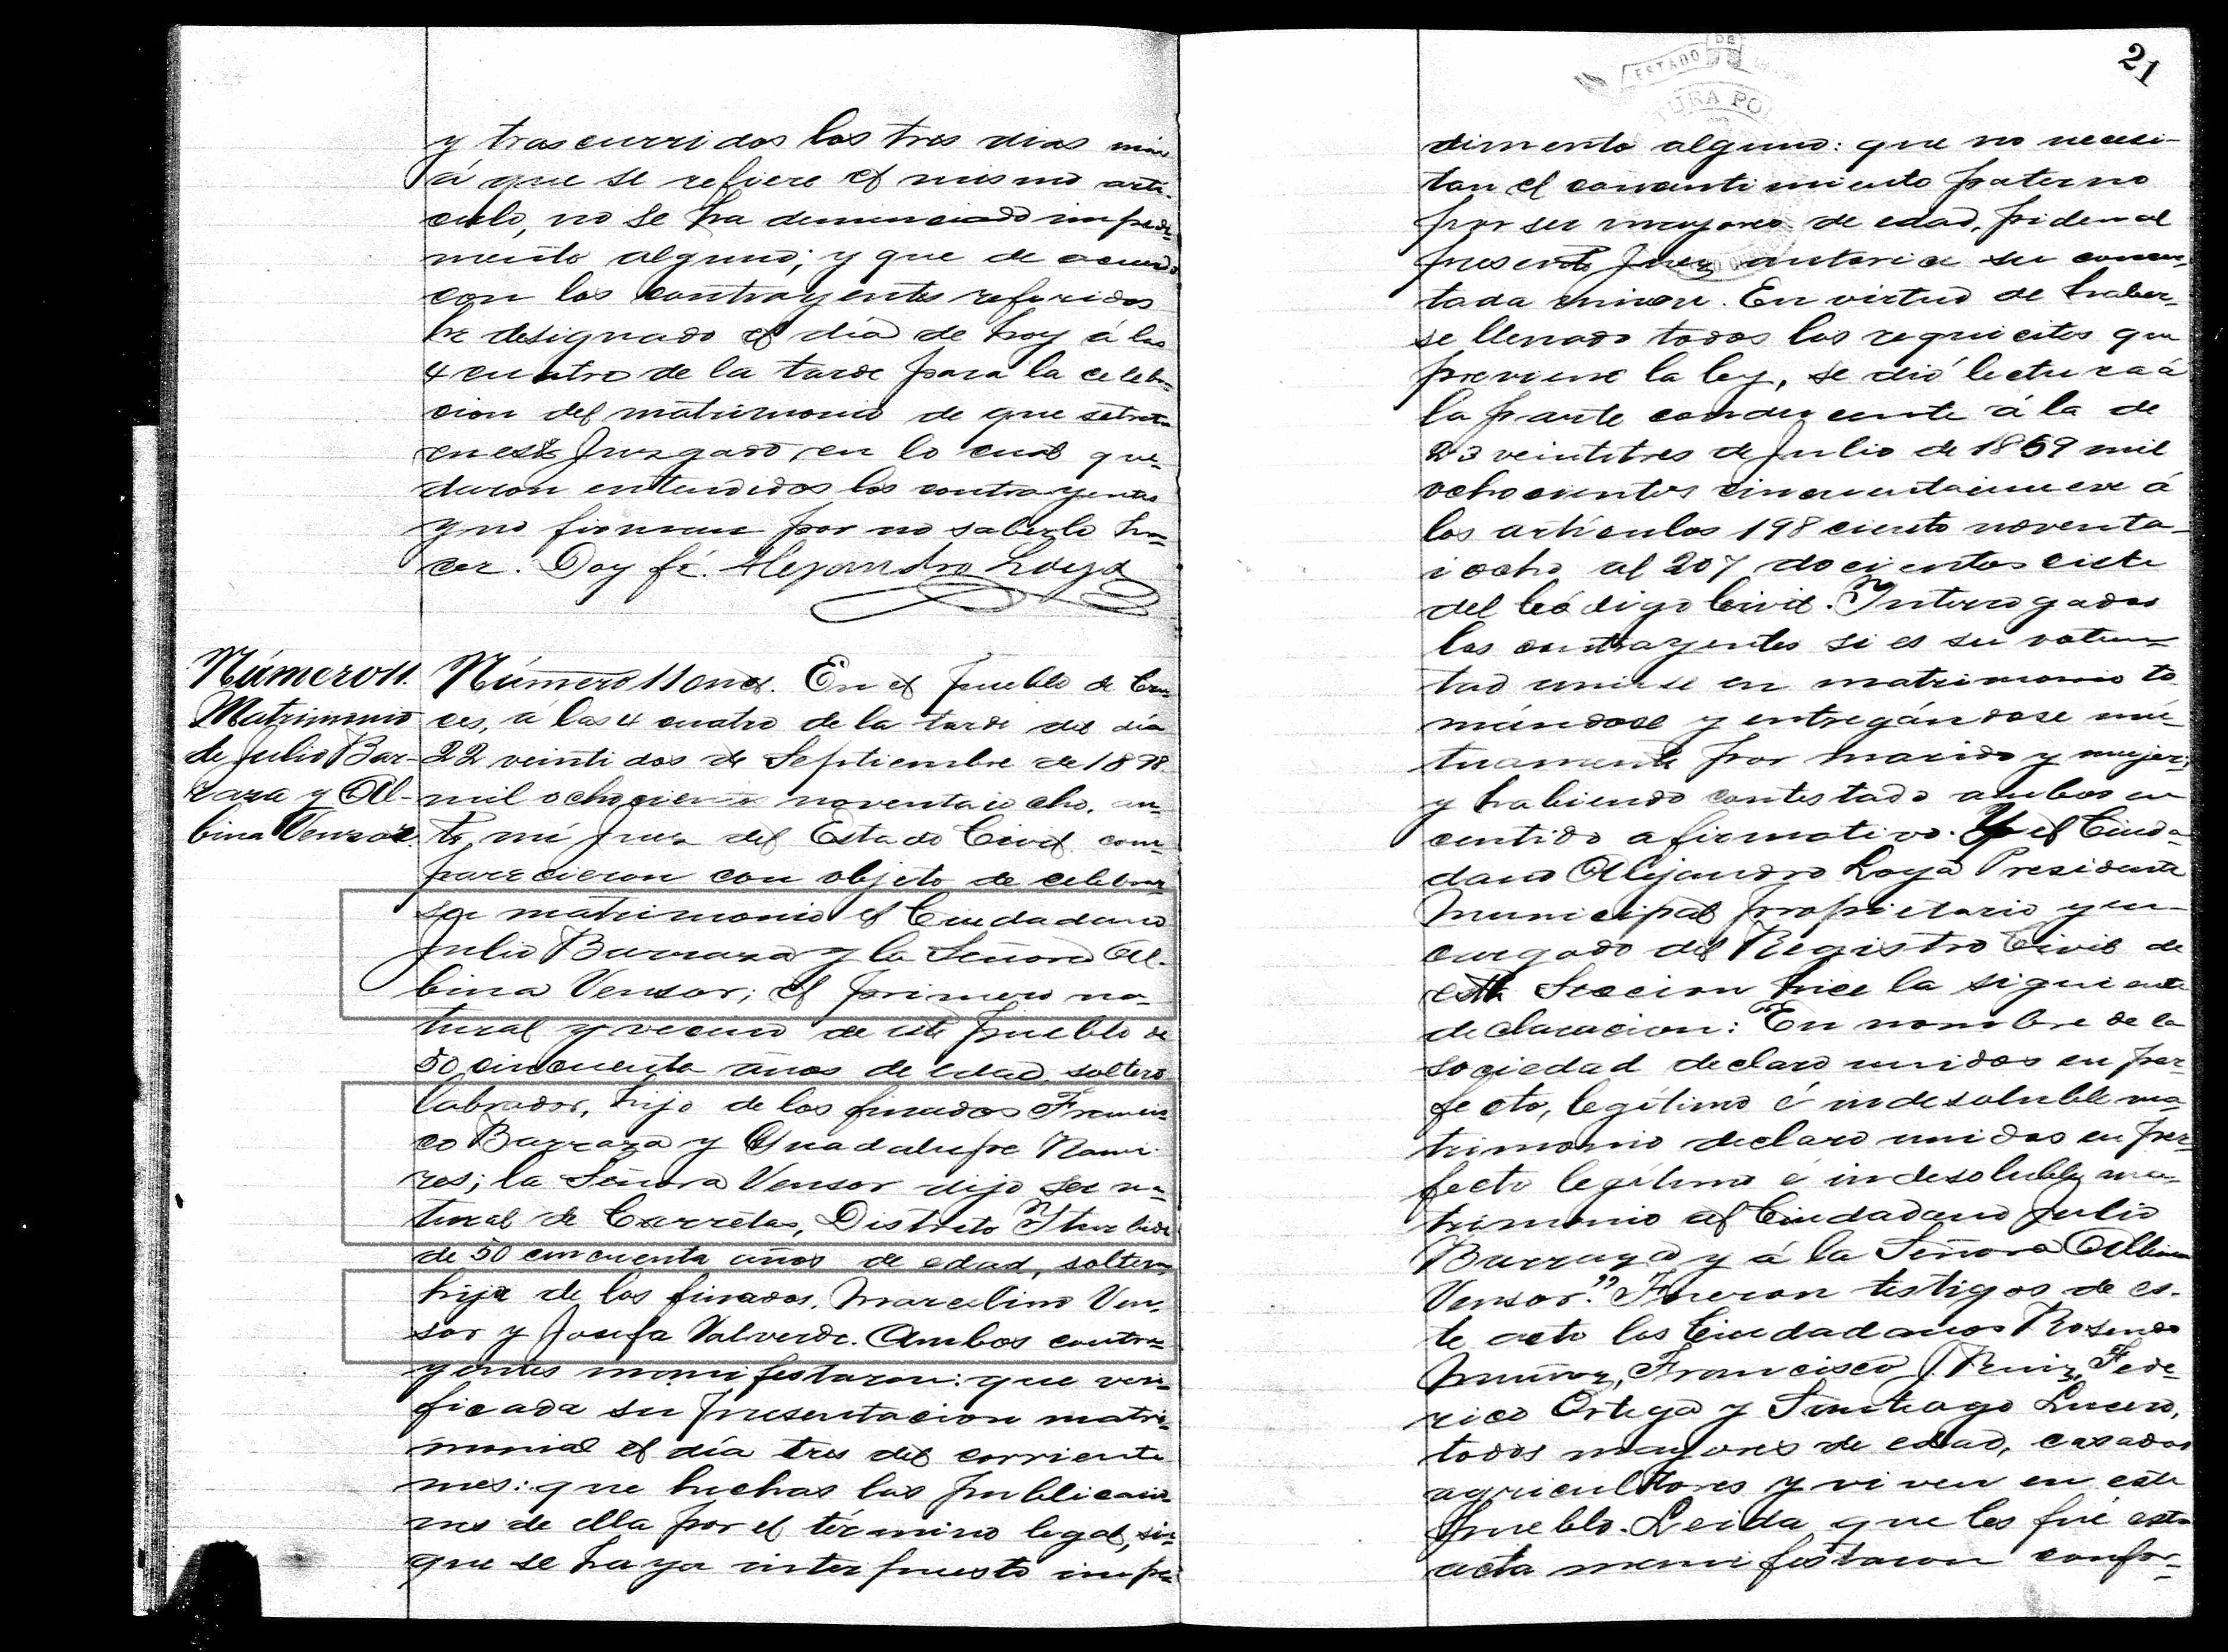 y trascurridos los tres dias más
á que se refiere el mismo artí-
culo, no se ha denunciado impedi-
mento alguno; y que de acuerdo
con los contrayentes referidos
he designado el día de hoy á las
4 cuatro de la tarde para la celebra-
cion del matrimonio de que se trata
en este Juzgado, en lo cual que-
daron entendidos los contrayentes
y no firman por no saberlo ha-
cer. Doy fé. Alejandro Loya
Número 11.
Matrimonio
de Julio Bar-
raza y Al-
bina Venzor.
Número 11 once. En el pueblo de Cru-
ces, á las 4 cuatro de la tarde del día
22 veintidos de Septiembre de 1898
mil ochocientos noventaiocho, an-
te mí Juez del Estado Civil com-
parecieron con objeto de celebrar
su matrimonio el Ciudadano
Julio Barraza y la Señora Al-
bina Vensor; el primero na-
tural y vecino de este pueblo de
50 cincuenta años de edad, soltero
labrador, hijo de los finados Francis-
co Barraza y Guadalupe Rami-
res; la Señora Vensor dijo ser na-
tural de Carretas, Distrito Iturbide
de 50 cincuenta años de edad, soltera,
hija de los finados, Marcelino Ven-
sor y Josefa Valverde. Ambos contra-
yentes manifestaron: que veri-
ficada su presentacion matri-
monial el día tres del corriente
mes: que hechas las publicacio-
nes de ella por el término legal, sin
que se haya interpuesto impe-
21
ESTADO DE
URA PO
dimento alguno: que no necesi-
tan el consentimiento paterno
por ser mayores de edad, piden al
presente Juez autorice su concer-
tada union. En virtud de haber-
se llenado todos los requicitos que
previene la ley, se dió lectura á
la parte conducente á la de
23 veintitres de Julio de 1859 mil
ochocientos cincuentainueve á
los artículos 198 ciento noventa-
iocho al 207 docientos ciete
del Código Civil. Interrogados
los contrayentes si es su volun-
tad unirse en matrimonio to-
mándose y entregándose mú-
tuamente por marido y mujer;
y habiendo contestado ambos en
centido afirmativo. Yo el Ciuda-
dano Alejandro Loya Presidente
Municipal propietario y en-
cargado del Registro Civil de
esta Seccion hice la siguiente
declaracion: "En nombre de la
sociedad declaro unidos en per-
fecto, legítimo é indesoluble ma-
trimonio declaro unidos en per-
fecto legítimo é indesoluble ma-
trimonio al Ciudadano Julio
Barraza y á la Señora Albina
Vensor." Fueron testigos de es-
te acto los Ciudadanos Rosendo
Muñoz, Francisco J. Ruiz, Fede-
rico Ortega y Santiago Lucero,
todos mayores de edad, casados
agricultores y viven en este
pueblo. Leida que les fué esta
acta manifestaron confor-